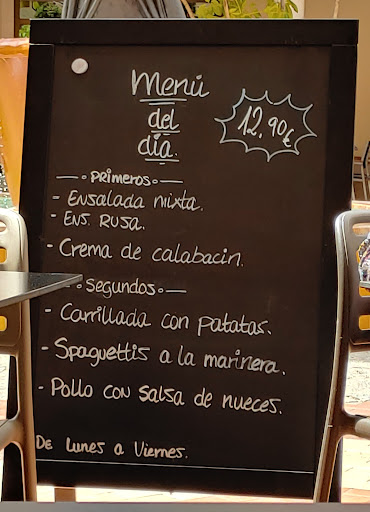 Menú
del
día.
12,90€
PRIMEROS
- ENSALADA mixta.
- ENS. RUSA.
- Crema de calabacin.
Segundos
- Carrillada con patatas.
- Spaguettis a la marinera.
- Pollo con salsa de nueces.
De Lunes a Viernes.